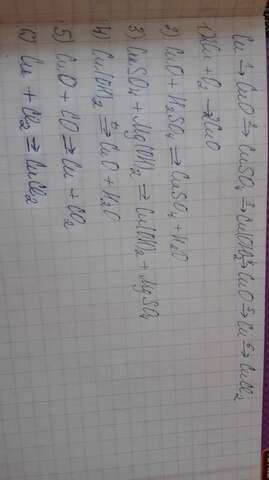 Cu → CuO → CuSO₄ → Cu(OH)₂ → CuO → Cu → CuCl₂
1) Cu + O₂ → 2CuO
2) CuO + H₂SO₄ → CuSO₄ + H₂O
3) CuSO₄ + Mg(OH)₂ = Cu(OH)₂ + MgSO₄
4) Cu(OH)₂ = CuO + H₂O
5) CuO + CO → Cu + CO₂
6) Cu + Cl₂ = CuCl₂